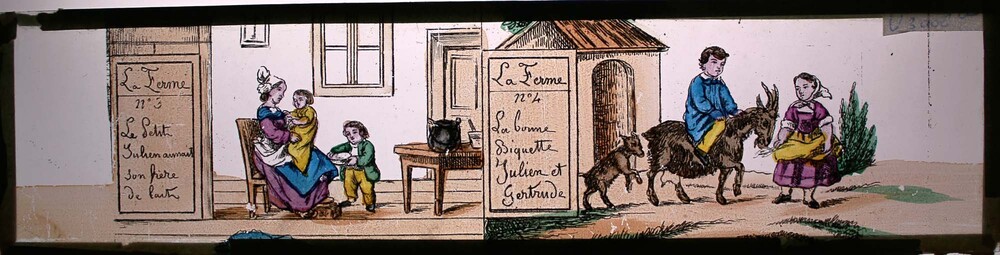 La Ferme
n° 3
Le Petit
Julien aimait
son frère
de lait
La Ferme
n° 4
La bonne
Biquette
Julien et
Gertrude